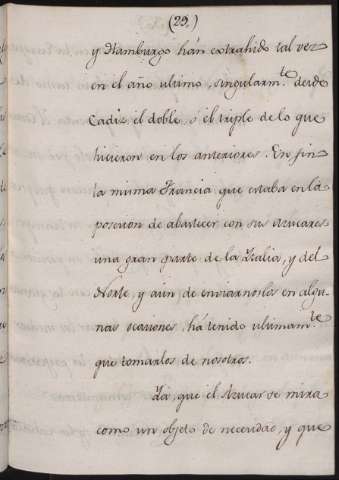 (29.)
y Hamburgo hán extrahido tal vez
en el año ultimo, singularm.te desde
Cadiz el doble, ó el triple de lo que
hicieron en los anteriores. En fin
la misma Francia que estaba en la
posesion de abastecer con sus Azucares
una gran parte de la Italia, y del
Norte, y aún de enviarnoslos en algu-
nas ocasiones, há tenido ultimam.te
que tomarlos de nosotros.
Ya, que el Azucar se mira
como un objeto de necesidad, y que